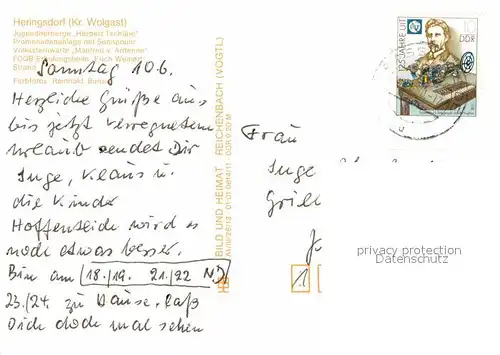 Heringsdorf (Kr. Wolgast)
Jugendherberge
Promenadenanlage mit Seebrücke
Volkssternwarte „Manfred v. Ardenne“
FDGB-Erholungsheim „Erich Weinert“
Farbfotos: Reinhold
Sonntag 10.6.
Herzliche Grüße aus
bis jetzt verregnetem
Urlaub sendet Dir
Inge, Klaus u.
die Kinder
Hoffentlich wird es
noch etwas besser.
Bin am 18./19. 21./22 ND
23./24. zu Hause. Laß
Dich doch mal sehen
BILD UND HEIMAT REICHENBACH (VOGTL)
125 JAHRE UIT
10
DDR
Frau
Inge
privacy protection
Datenschutz